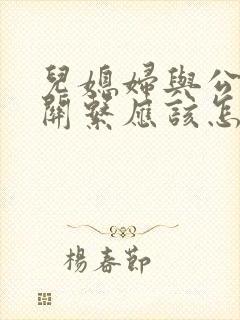 兒媳婦與公
關繫應該怎
楊春節